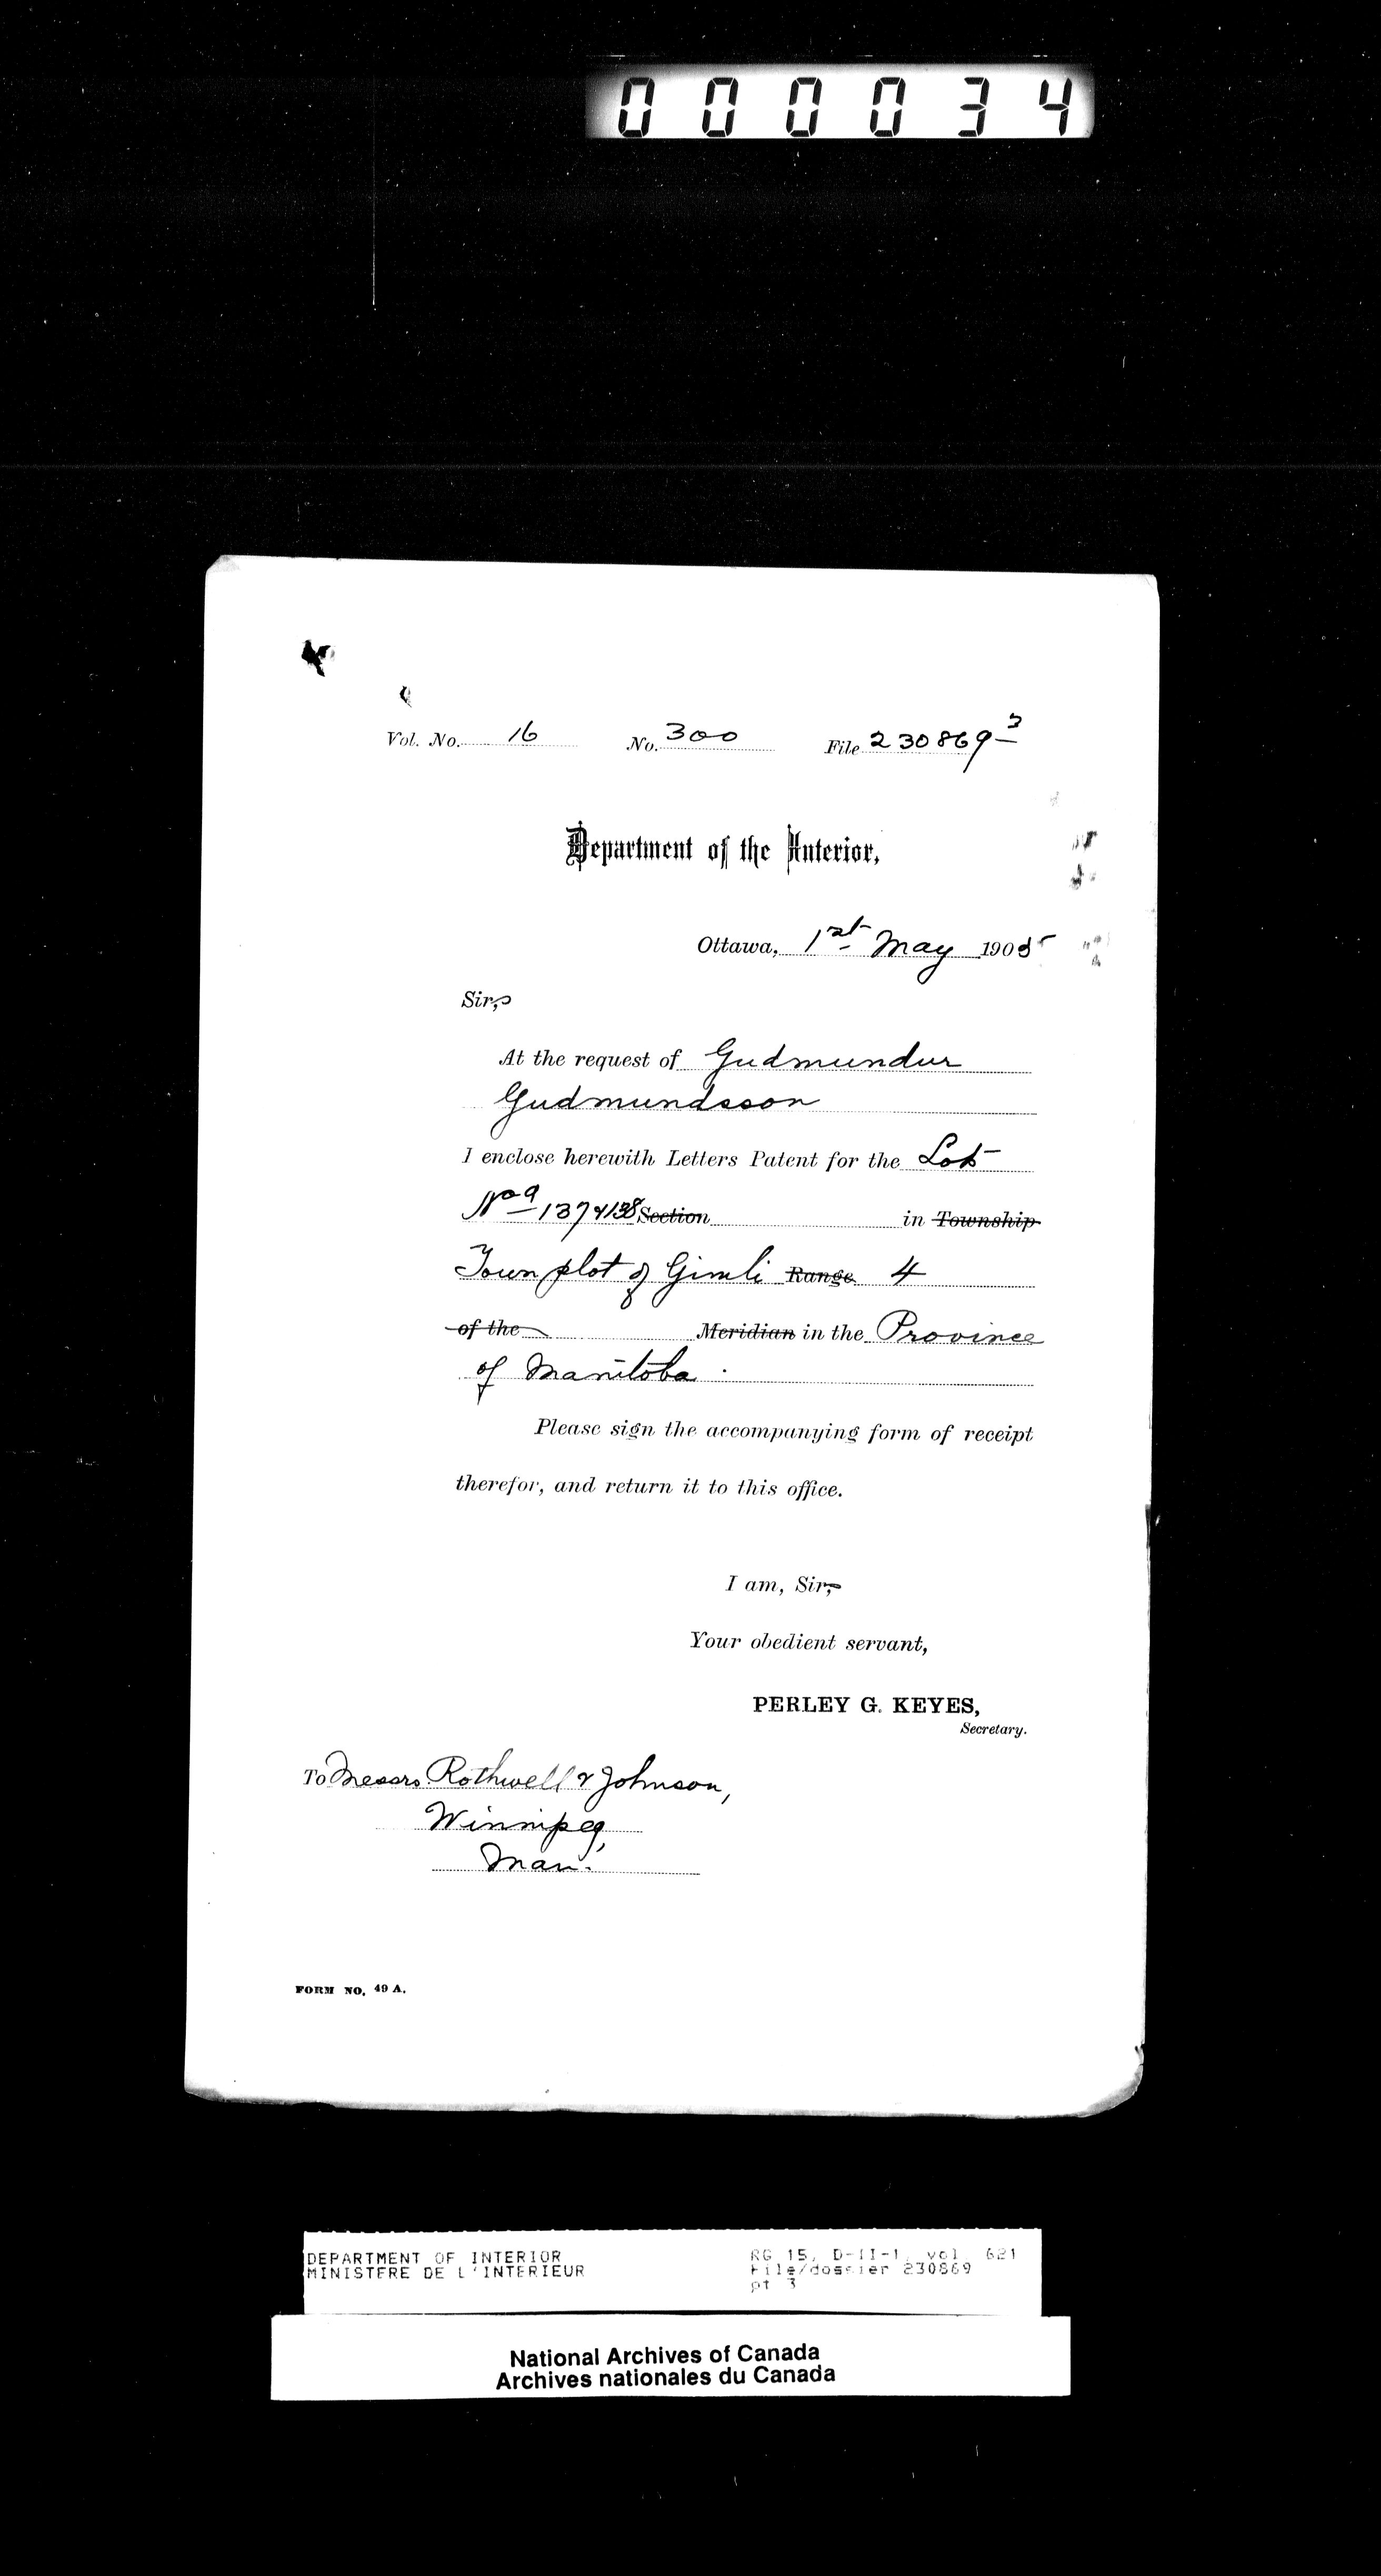 000034
Vol. No. 16 No. 300 File 230869 3
Department of the Interior,
Ottawa, 1st May 1905
Sir,
At the request of Gudmundur
Gudmundsson
I enclose herewith Letters Patent for the Lot
No 137 & 138 Section in Township
Town plot of Gimli Range 4
of the Meridian in the Province
of Manitoba.
Please sign the accompanying form of receipt
therefor, and return it to this office.
I am, Sir,
Your obedient servant,
PERLEY G. KEYES,
Secretary.
To Messrs Rothwell & Johnson,
Winnipeg,
Man.
FORM NO. 49 A.
DEPARTMENT OF INTERIOR RG 15, D-II-1, vol 621
MINISTERE DE L'INTERIEUR File/dossier 230869
pt 3
National Archives of Canada
Archives nationales du Canada